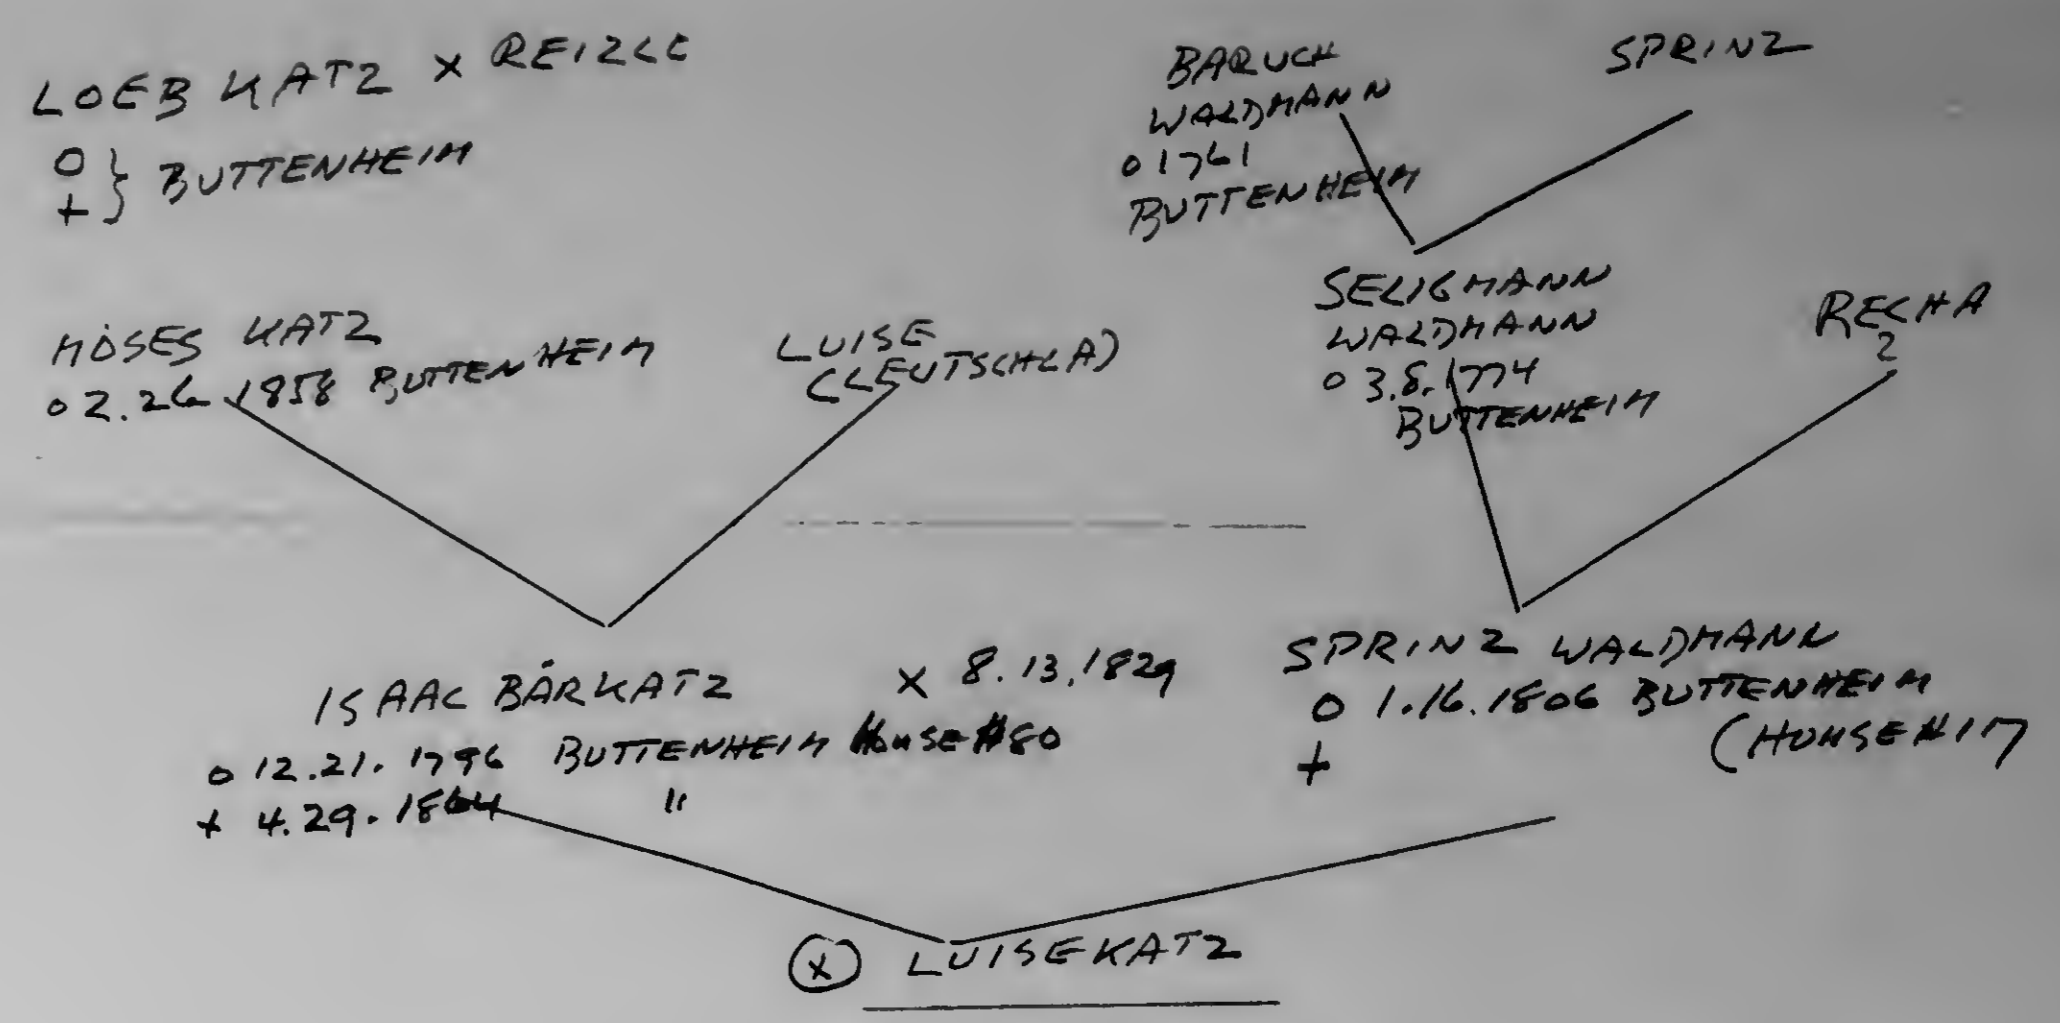 LOEB KATZ x REIZLE
o } BUTTENHEIM
+
BARUCH
WALDMANN
o 1761
BUTTENHEIM
SPRINZ
MOSES KATZ
o 2.26 1858 BUTTENHEIM
LUISE
(LEUTSCHLA)
SELIGMANN
WALDMANN
o 3.8.1774
BUTTENHEIM
RECHA
2
ISAAC BÄRKATZ
x 8.13.1829
o 12.21.1796 BUTTENHEIM HOUSE #80
+ 4.29.1864 "
SPRINZ WALDMANN
o 1.16.1806 BUTTENHEIM
(HOUSE #17
+
x LUISE KATZ